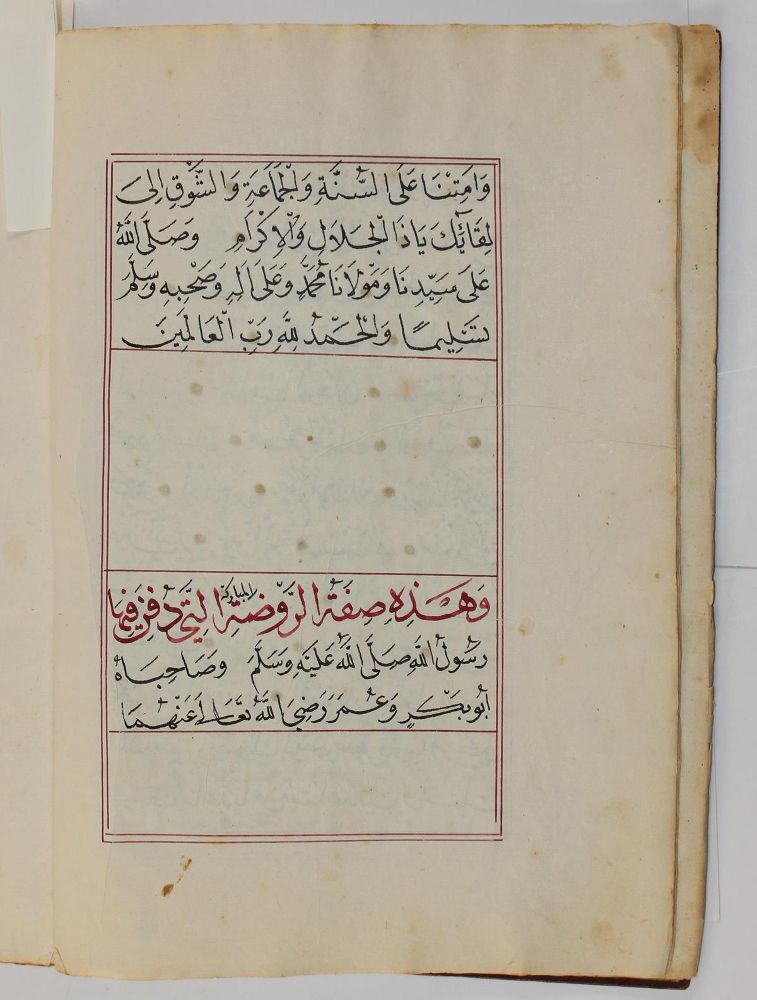 وَامِتْنَا عَلَى السُّنَّةِ وَالْجَمَاعَةِ وَالشَّوْقِ اِلَى
لِقَائِكَ يَاذَا الْجَلَالِ وَالْاِكْرَامِ وَصَلَّى اللهُ
عَلَى سَيِّدِنَا وَمَوْلَانَا مُحَمَّدٍ وَعَلَى اٰلِهٖ وَصَحْبِهٖ وَسَلَّمَ
تَسْلِيمًا وَالْحَمْدُ لِلّٰهِ رَبِّ الْعَالَمِينَ
وَهٰذِهِ صِفَةُ الرَّوْضَةِ المباركة الَّتِي دُفِنَ فِيهَا
رَسُولُ اللهِ صَلَّى اللهُ عَلَيْهِ وَسَلَّمَ وَصَاحِبَاهُ
اَبُو بَكْرٍ وَعُمَرَ رَضِيَ اللهُ تَعَالٰى عَنْهُمَا